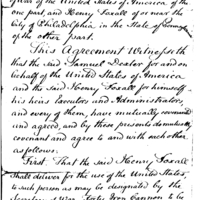 of the United States of America of the
one part, and Henry Foxall of or near the
City of Philadelphia in the State of
of the other part.
This Agreement Witnesseth
that the said Samuel Dexter for and on
behalf of the United States of America
and the said Henry Foxall for himself
his heirs Executors and Administrators,
and every of them, have mutually covenanted
and agreed, and by these presents do mutually
covenant and agree to and with each other,
as follows.
First. That the said Henry Foxall
shall deliver for the use of the United States,
to such person as may be designated by the
of War, Iron Cannon to be